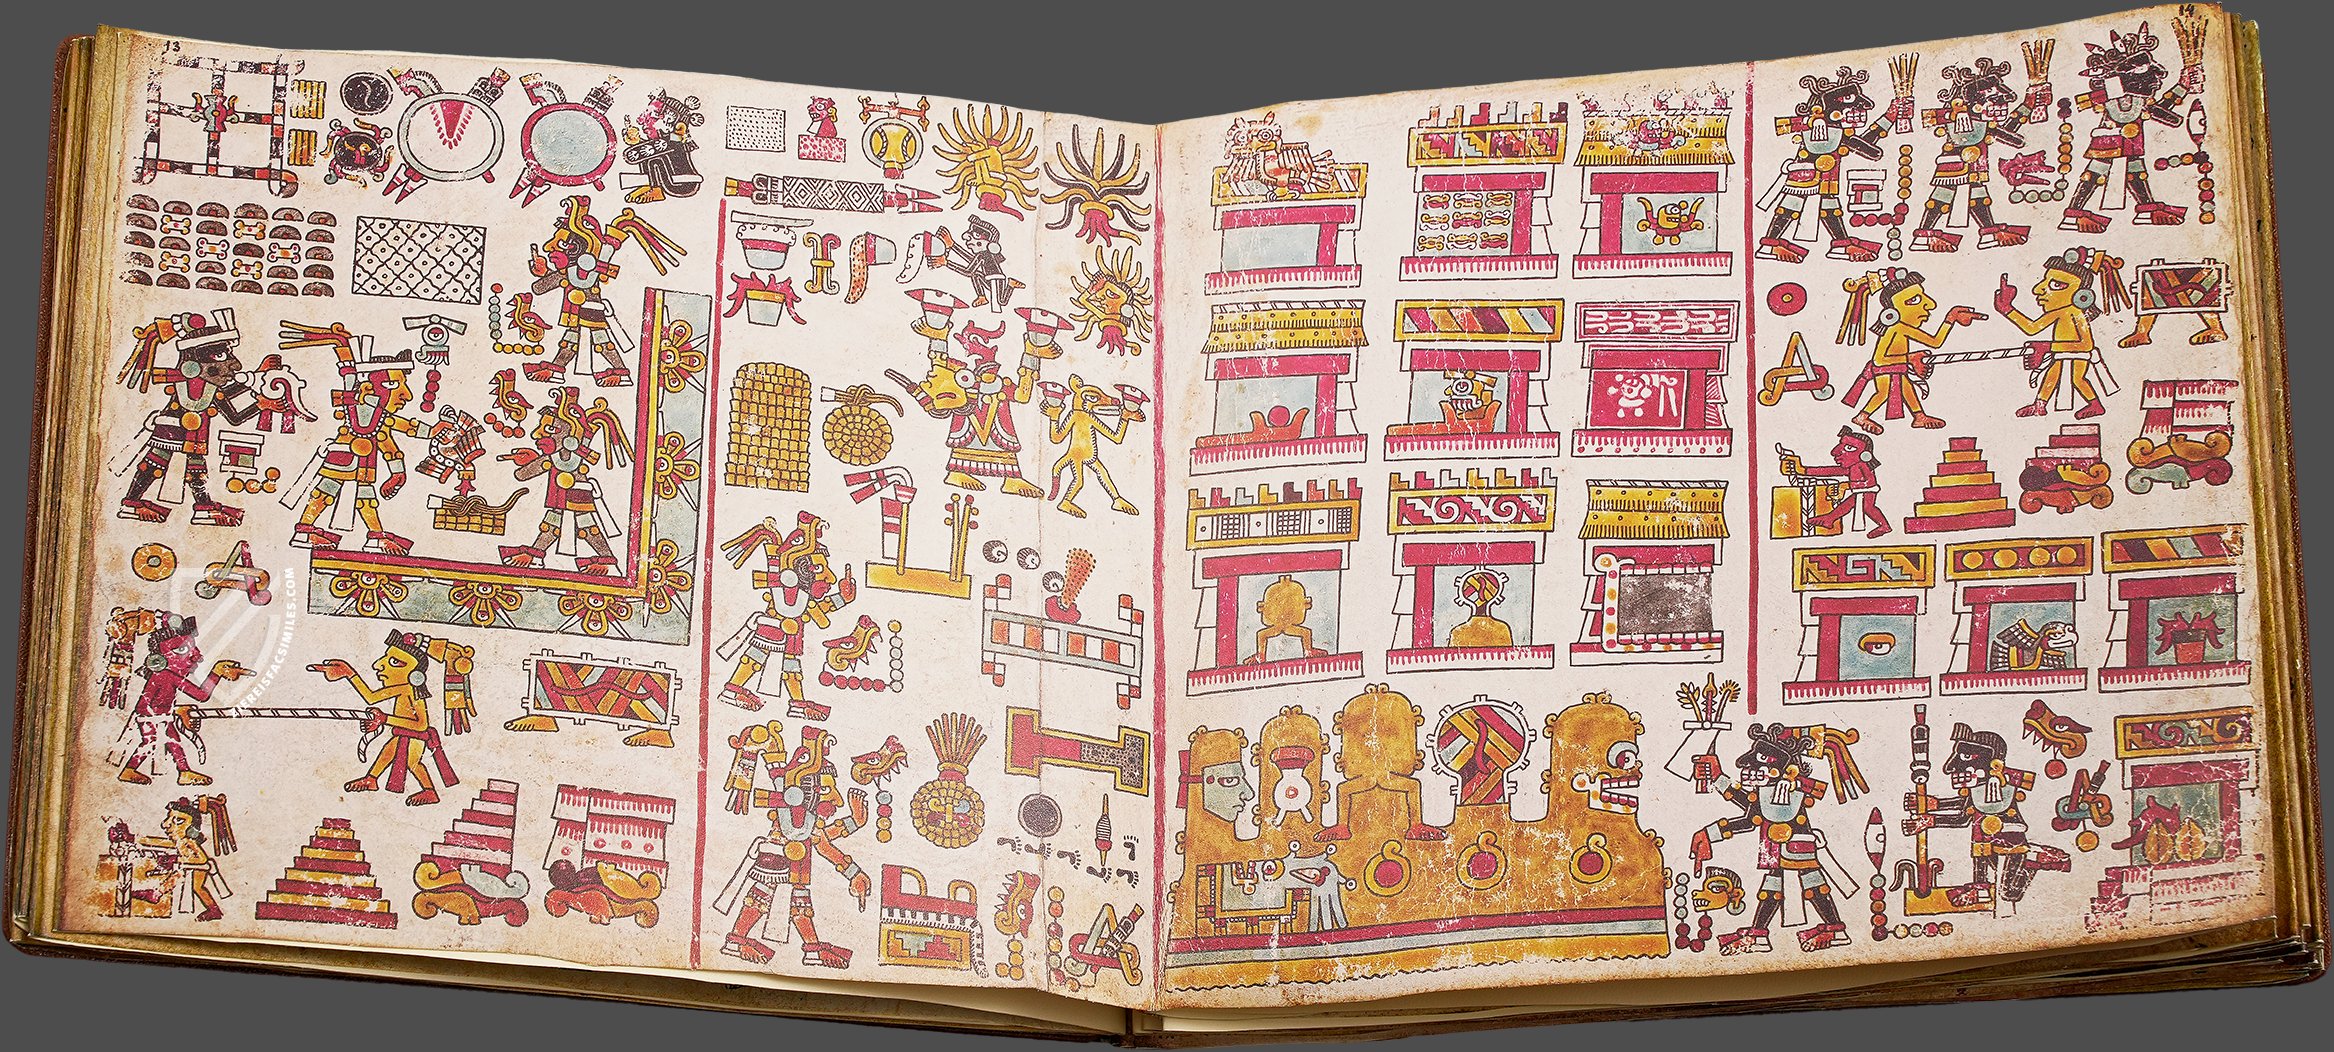 13
14
ZIEREISFACSIMILES.COM